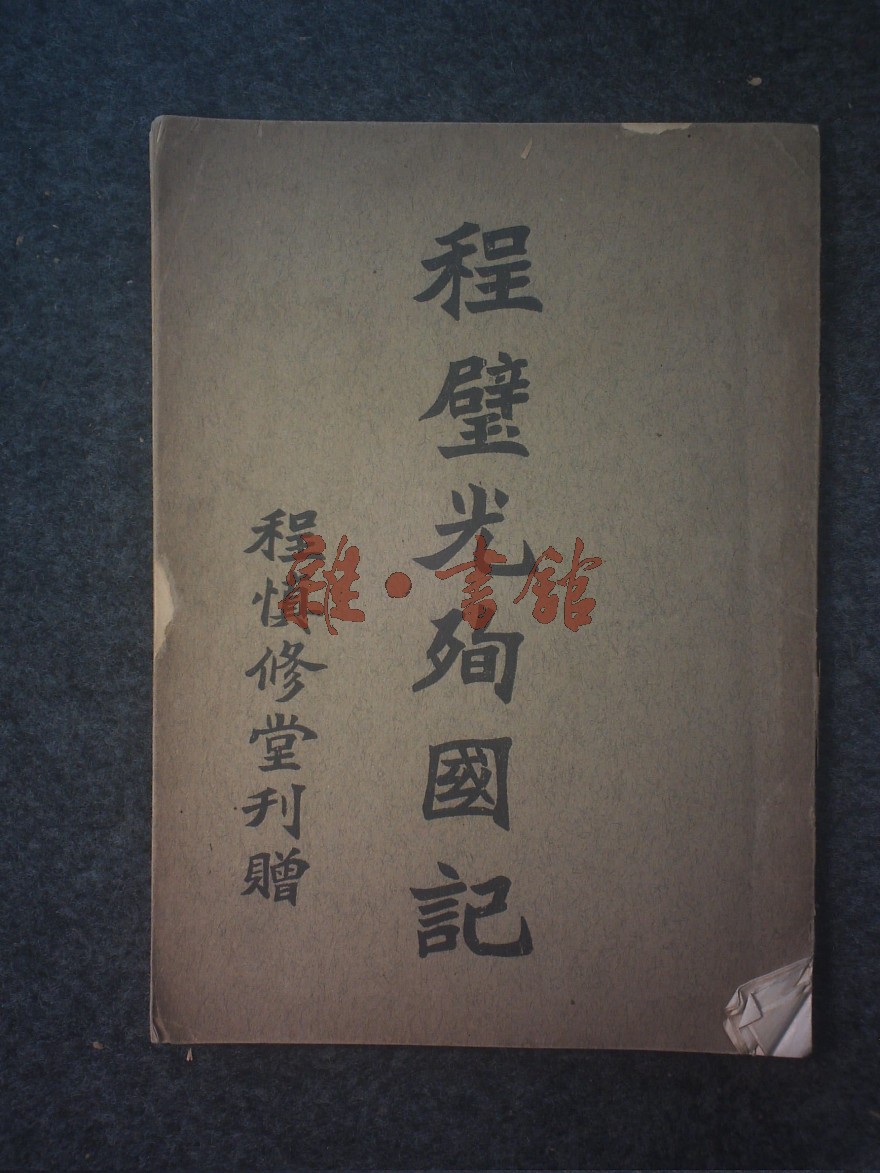 程璧光殉國記
程慎修堂刊贈
雜·書館